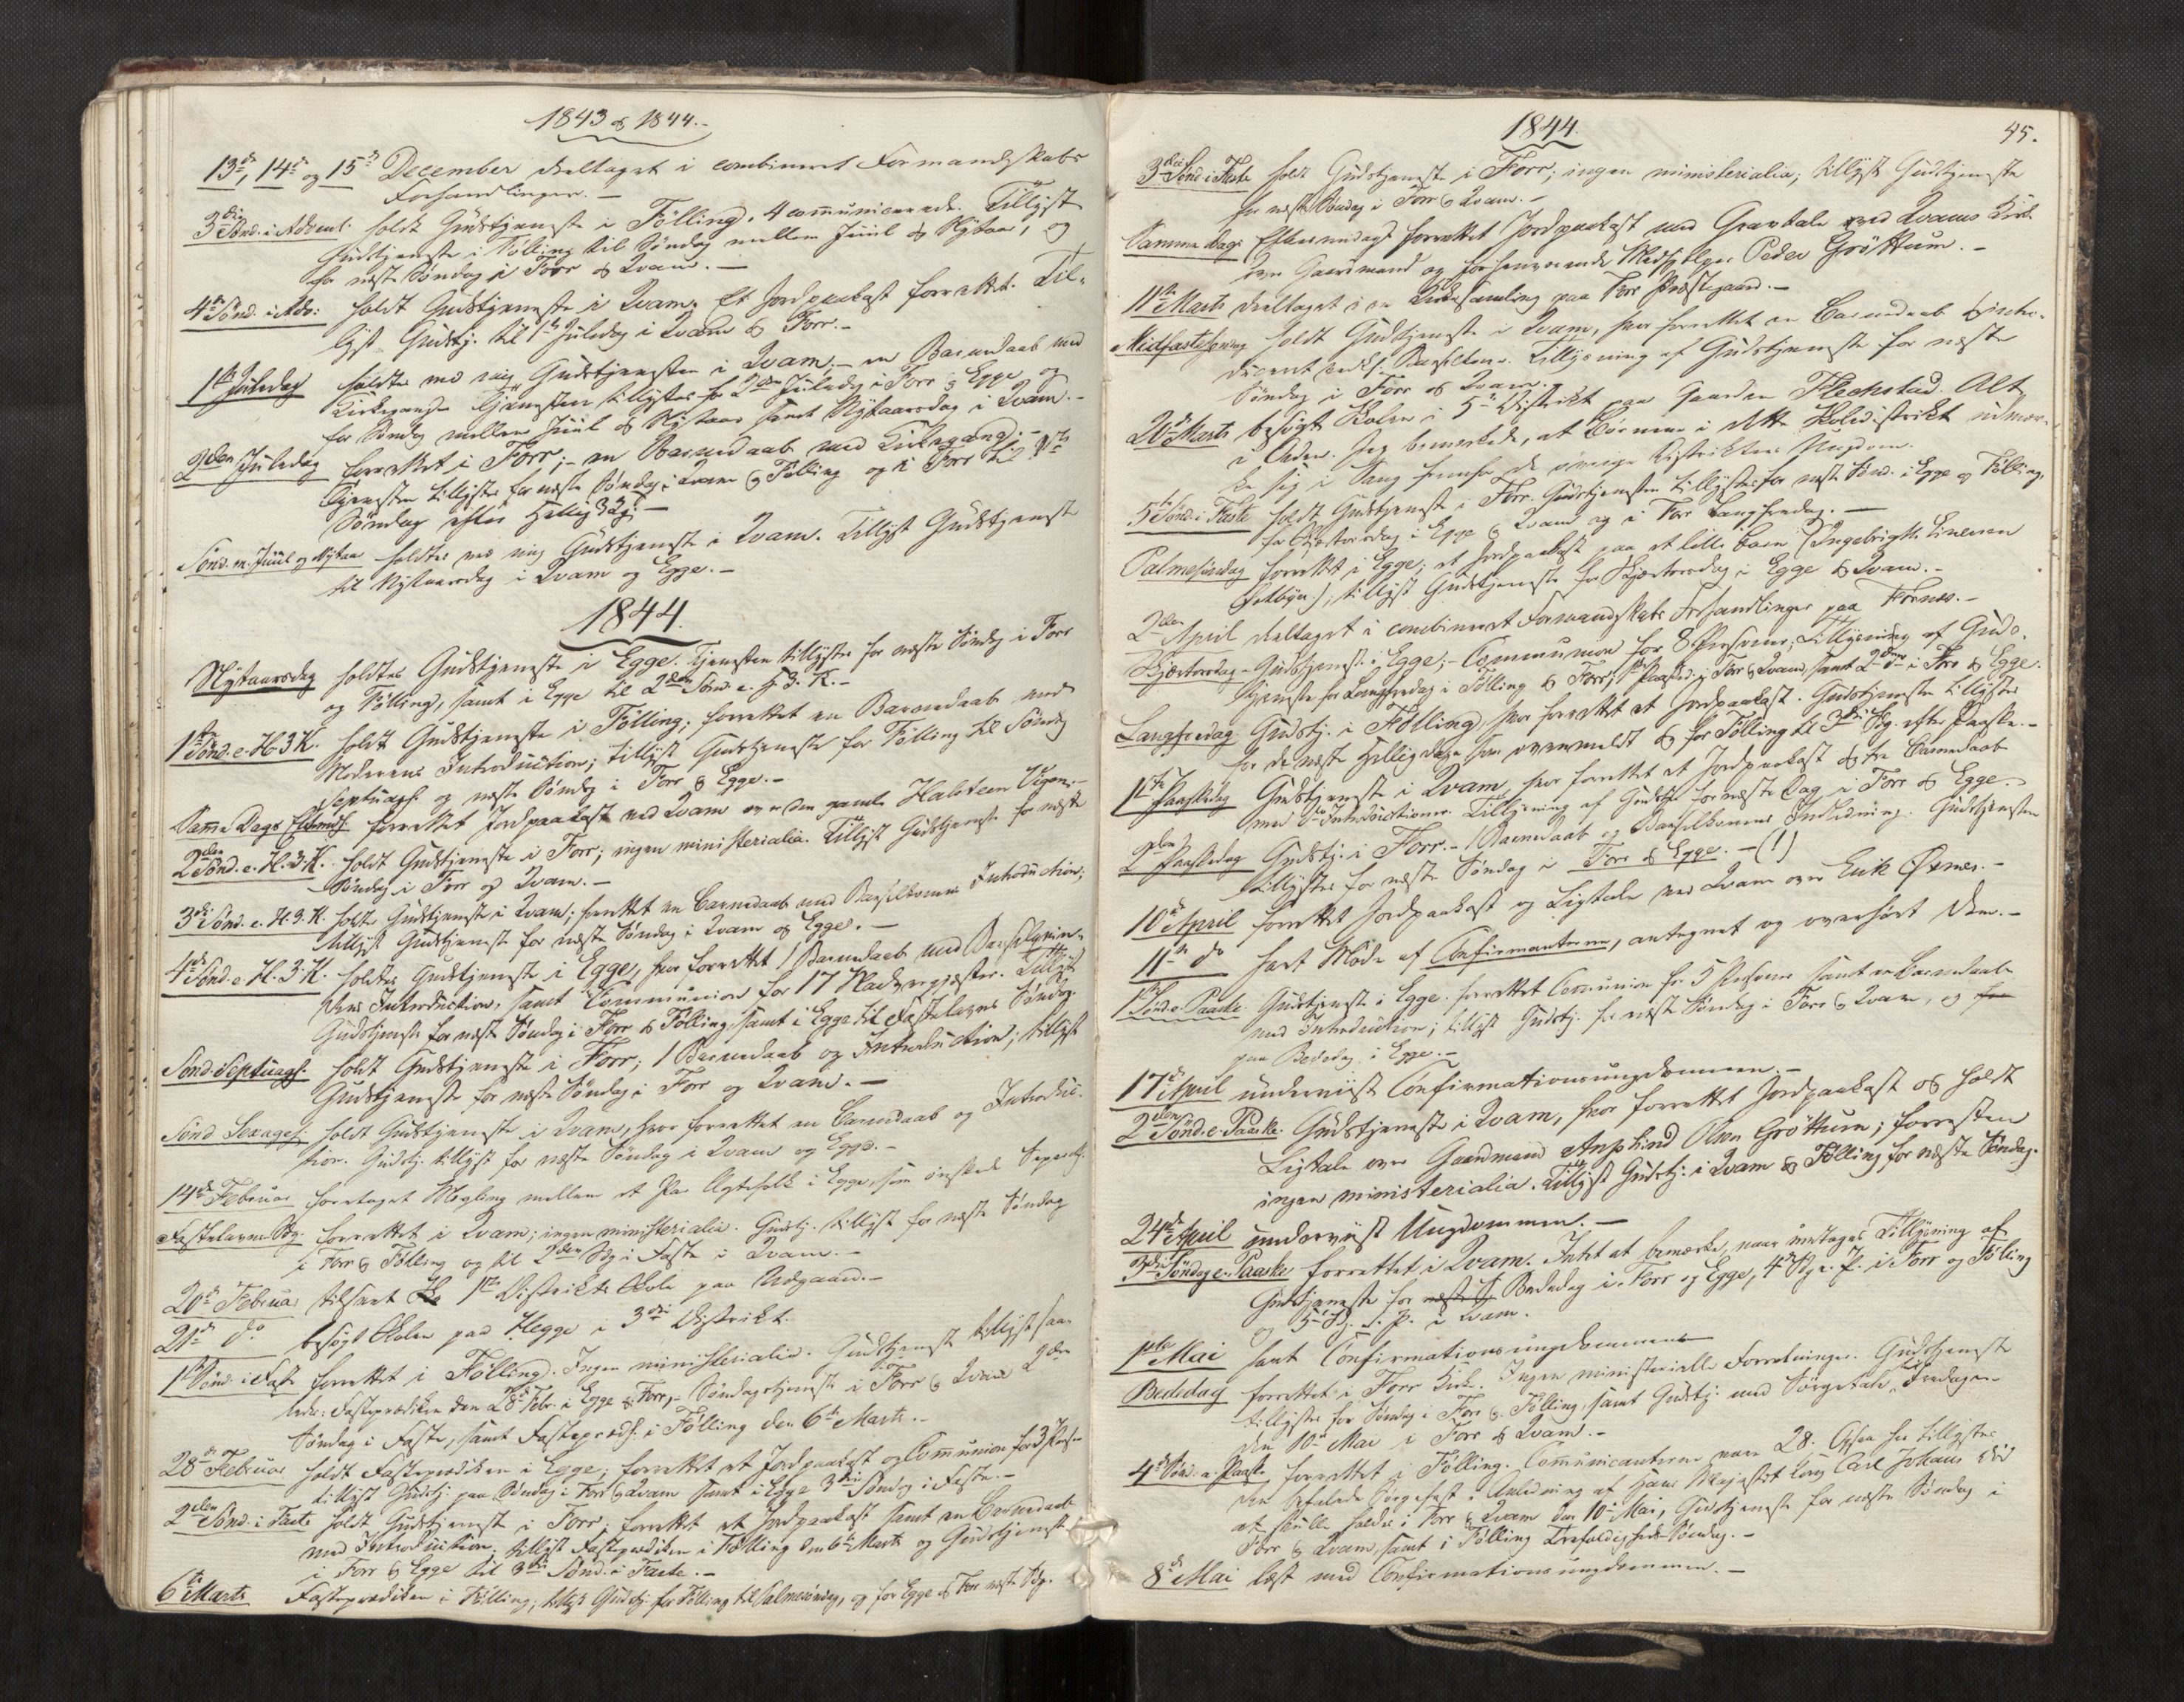 1843 & 1844.-
13de, 14de og 15de December deeltaget i combineret Formandskabs
Forhandlinger. -
3die Sønd. i Advent. holdt Gudstjeneste i Følling. 4 communicerede. Tillyst
Gudstjeneste i Følling til Søndag mellem Juul & Nytaar, og
for næste Søndag i Forr & Qvam. -
4de Sønd. i Adv: holdt Gudstjeneste i Qvam. Et Jordpaakast forrettet. Til-
lyst Gudstj. til 1ste Juledag i Qvam & Forr. -
1ste Juledag holdtes ved mig Gudstjenesten i Qvam; - en Barnedaab med
Kirkegang. Tjenesten tillystes for 2den Juledag i Forr & Egge og
for Søndag mellem Juul & Nytaar samt Nytaarsdag i Qvam. -
2den Juledag forrettet i Forr; - en Barnedaab med Kirkegang; -
Tjenesten tillystes for næste Søndag i Qvam & Følling og i Forr til 1ste
Søndag efter Hellig 3 Kg. -
Sønd. m. Juul og Nytaar holdtes ved mig Gudstjeneste i Qvam. Tillyst Gudstjeneste
til Nytaarsdag i Qvam og Egge. -
1844.
Nytaarsdag holdtes Gudstjeneste i Egge. Tjenesten tillystes for næste Søndag i Forr
og Følling, samt i Egge til 2den Sønd. e. H. 3. K. -
1ste Sønd. e. H. 3 K. holdt Gudstjeneste i Følling; forrettet en Barnedaab med
Moderens Introduction; tillyst Gudstjeneste for Følling til Søndag
Septuages. og næste Søndag i Forr & Egge. -
Samme Dags Eftermid. forrettet Jordpaakast ved Qvam over den gamle Halsteen
2den Sønd. e. H. 3. K. holdt Gudstjeneste i Forr; ingen ministerialia. Tillyst Gudstjeneste for næste
Søndag i Forr og Qvam. -
3die Sønd. e. H. 3. K. holdt Gudstjeneste i Qvam; forrettet en Barnedaab med Barselkonens Introduction;
tillyst Gudstjeneste for næste Søndag i Qvam og Egge. -
4de Sønd. e. H. 3. K. holdtes Gudstjeneste i Egge, hvor forrettet 1 Barnedaab med Barselqvin-
dens Introduction, samt Communion for 17 Nadvergjæster. Tillyst
Gudstjeneste for næste Søndag i Forr & Følling, samt i Egge til Fastelavns Søndag.
Sønd. Septuages. holdt Gudstjeneste i Forr; 1 Barnedaab og Introduction; tillyst
Gudstjeneste for næste Søndag i Forr og Qvam. -
Sønd Sexages. holdt Gudstjeneste i Qvam, hvor forrettet en Barnedaab og Introduc-
tion. Gudstj. tillyst for næste Søndag i Qvam og Egge. -
14de Februar foretaget Megling mellem et Par Ægtefolk i Egge, som ønskede
Fastelavns Sdg. forrettet i Qvam; ingen ministerialia. Gudstj. tillyst for næste Søndag
i Forr & Følling og til 2den Sdg i Faste i Qvam. -
20de Februar tilseet 1ste Districts Skole paa
21de do besøgt Skolen paa Hegge i 3die District.
1ste Sønd. i Faste forrettet i Følling. Ingen ministerialia. Gudstjeneste tillyst saa-
ledes: Fasteprædiken den 28de Febr. i Egge & Forr, - Søndagstjeneste i Forr & Qvam 2den
Søndag i Faste, samt Fasteprædk. i Følling den 6te Marts. -
28de Februar holdt Fasteprædiken i Egge; forrettet et Jordpaakast og Communion for 3 Pers.
tillyst Gudstj. paa Søndag i Forr & Qvam samt i Egge 3die Søndag i Faste. -
2den Sønd. i Faste holdt Gudstjeneste i Forr; forrettet et Jordpaakast samt en Barnedaab
med Introduction; tillyst Fasteprædiken i Følling den 6te Marts og Gudstjeneste
i Forr & Egge til 3die Sønd. i Faste. -
6te Marts Fasteprædiken i Følling; tillyst Gudstj. for Følling til Palmesøndag, og for Egge & Forr næste Sdg.
1844.
45.
3die Sønd i Faste holdt Gudstjeneste i Forr; ingen ministerialia; tillyst Gudstjeneste
for næste Søndag i Forr & Qvam. -
Samme Dags Eftermiddag forrettet Jordpaakast med Gravtale ved Qvams Kirke
over Gaardmand og forhenværende Medhjelper Peder Grøttum. -
11te Marts deeltaget i en paa Forr Præstegaard. -
Midfastesøndag holdt Gudstjeneste i Qvam, hvor forrettet en Barnedaab & intro-
duceret Barselkone. Tillysning af Gudstjeneste for næste
Søndag i Forr & Qvam. -
20de Marts besøgt Skolen i 5te District paa Gaarden Flekstad. Alt
i Orden. Jeg bemærkede, at Børnene i dette Skoledistrikt udmær-
ke sig i Sang fremfor de øvrige Distrikters Ungdom.
5te Sønd. i Faste holdt Gudstjeneste i Forr. Gudstjenesten tillystes for næste Sønd. i Egge og Følling,
for Skjærtorsdag i Egge & Qvam og i Forr Langfredag. -
Palmesøndag forrettet i Egge; et Jordpaakast paa et lille Barn (Ingebrigt Einersen
); tillyst Gudstjeneste for Skjærtorsdag i Egge & Qvam. -
2den April deeltaget i combineret Formandskabs Forhandlinger paa
Skjærtorsdag - Gudstjeneste i Egge; - Communion for 8 Personer; Tillysning af Guds-
tjeneste for Langfredag i Følling & Forr, 1ste Paaskd. i Forr & Qvam, samt 2den Do i Forr & Egge.
Langfredag Gudstj. i Følling, hvor forrettet et Jordpaakast. Gudstjenesten tillystes
for de næste Helligdage som ovenmeldt & for Følling til 3die Sdg. efter Paaske. -
1ste Paaskedag Gudstjeneste i Qvam, hvor forrettet et Jordpaakast & tre Barnedaab
med Introductioner. Tillysning af Gudstj. for næste Dag i Forr & Egge. -
2den Paaskedag Gudstj. i Forr. - 1 Barnedaab og Barselkonens Indledning. Gudstjenesten
tillystes for næste Søndag i Forr & Egge. - (!)
10de April forrettet Jordpaakast og Ligtale ved Qvam over Erik Øxnes. -
11te do havt Møde af Confirmanterne, antegnet og overhørt dem. -
1ste Sønd. e. Paaske. Gudstjeneste i Egge. forrettet Communion for 5 Personer samt en Barnedaab
med Introduction; tillyst Gudstj. for næste Søndag i Forr & Qvam, og for
paa Bededag i Egge. -
17de April underviist Confirmationsungdommen. -
2den Sønd. e. Paaske. Gudstjeneste i Qvam, hvor forrettet Jordpaakast & holdt
Ligtale over Gaardmand Olsen Grøttum; forresten
ingen ministerialia. Tillyst Gudstj. i Qvam & Følling for næste Søndag.
24de April underviist Ungdommen. -
3die Søndag e. Paaske forrettet i Qvam. Intet at bemærke, naar undtages Tillysning af
Gudstjeneste for næste S Bededag i Forr og Egge, 4de Sdg. e. P. i Forr og Følling
& 5te Sdg. e. P. i Qvam.
1ste Mai havt Confirmationsungdommen
Bededag forrettet i Forr Kirke. Ingen ministerielle Forretninger. Gudstjeneste
tillystes for Søndag i Forr & Følling, samt Gudstj. med Sørgetale Fredagen
den 10de Mai i Forr & Qvam. -
4de Sønd. e. Paaske forrettet i Følling. Communicanterne vare 28. Ogsaa her tillystes
den befalede Sørgefest i Anledning af Hans Majestæt Kong Carl Johans Død
at skulle holdes i Forr & Qvam den 10de Mai, Gudstjeneste for næste Søndag i
Forr & Qvam, samt i Følling Trefoldigheds Søndag. -
8de Mai læst med Confirmationsungdommen. -